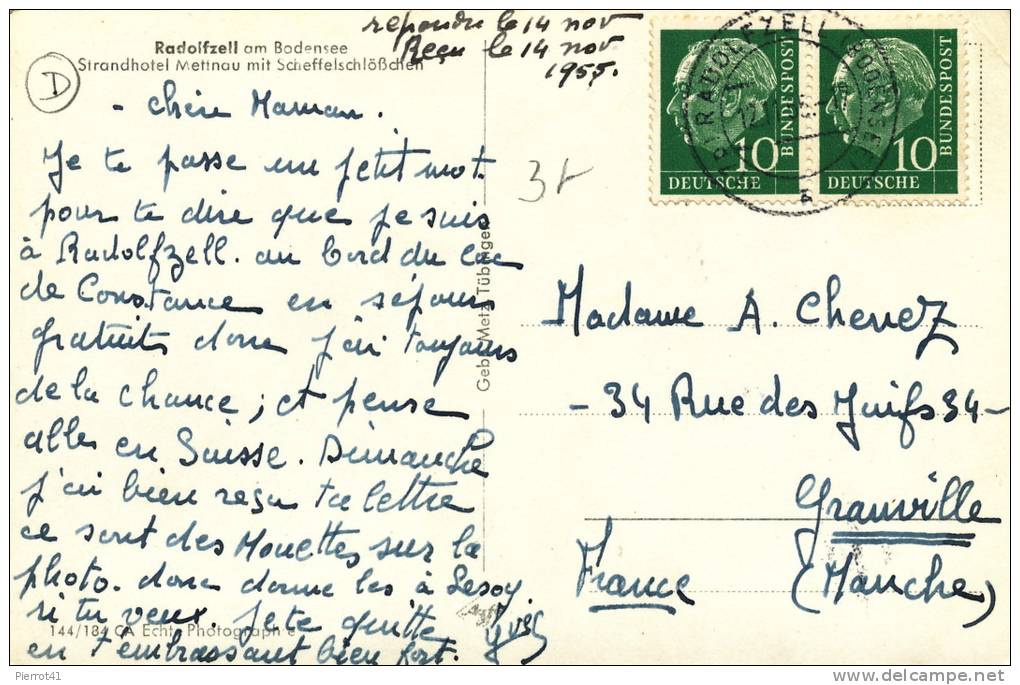 Radolfzell am Bodensee
Strandhotel Mettnau mit Scheffelschlößchen
D
repondu le 14 nov
Reçu le 14 nov
1955.
- Chère Maman.
Je te passe un petit mot
pour te dire que je suis
à Radolfzell. au bord du Lac
de Constance en séjour
gratuits donc j'ai toujours
de la chance ; et pense
aller en Suisse. Dimanche
j'ai bien reçu ta lettre
ce sont des Mouettes sur la
photo. donc donne les à Lesoy.
si tu veux. Je te quitte
en t'embrassant bien fort.
Yves
144/184 CA Echte Photographie
Gebr. Metz, Tübingen
RADOLFZELL (BODENSEE)
10
DEUTSCHE
BUNDESPOST
10
DEUTSCHE
BUNDESPOST
Madame A. Chenez
- 34 Rue des Juifs 34 -
Granville
(Manche)
France
Pierrot41
delcampe.net